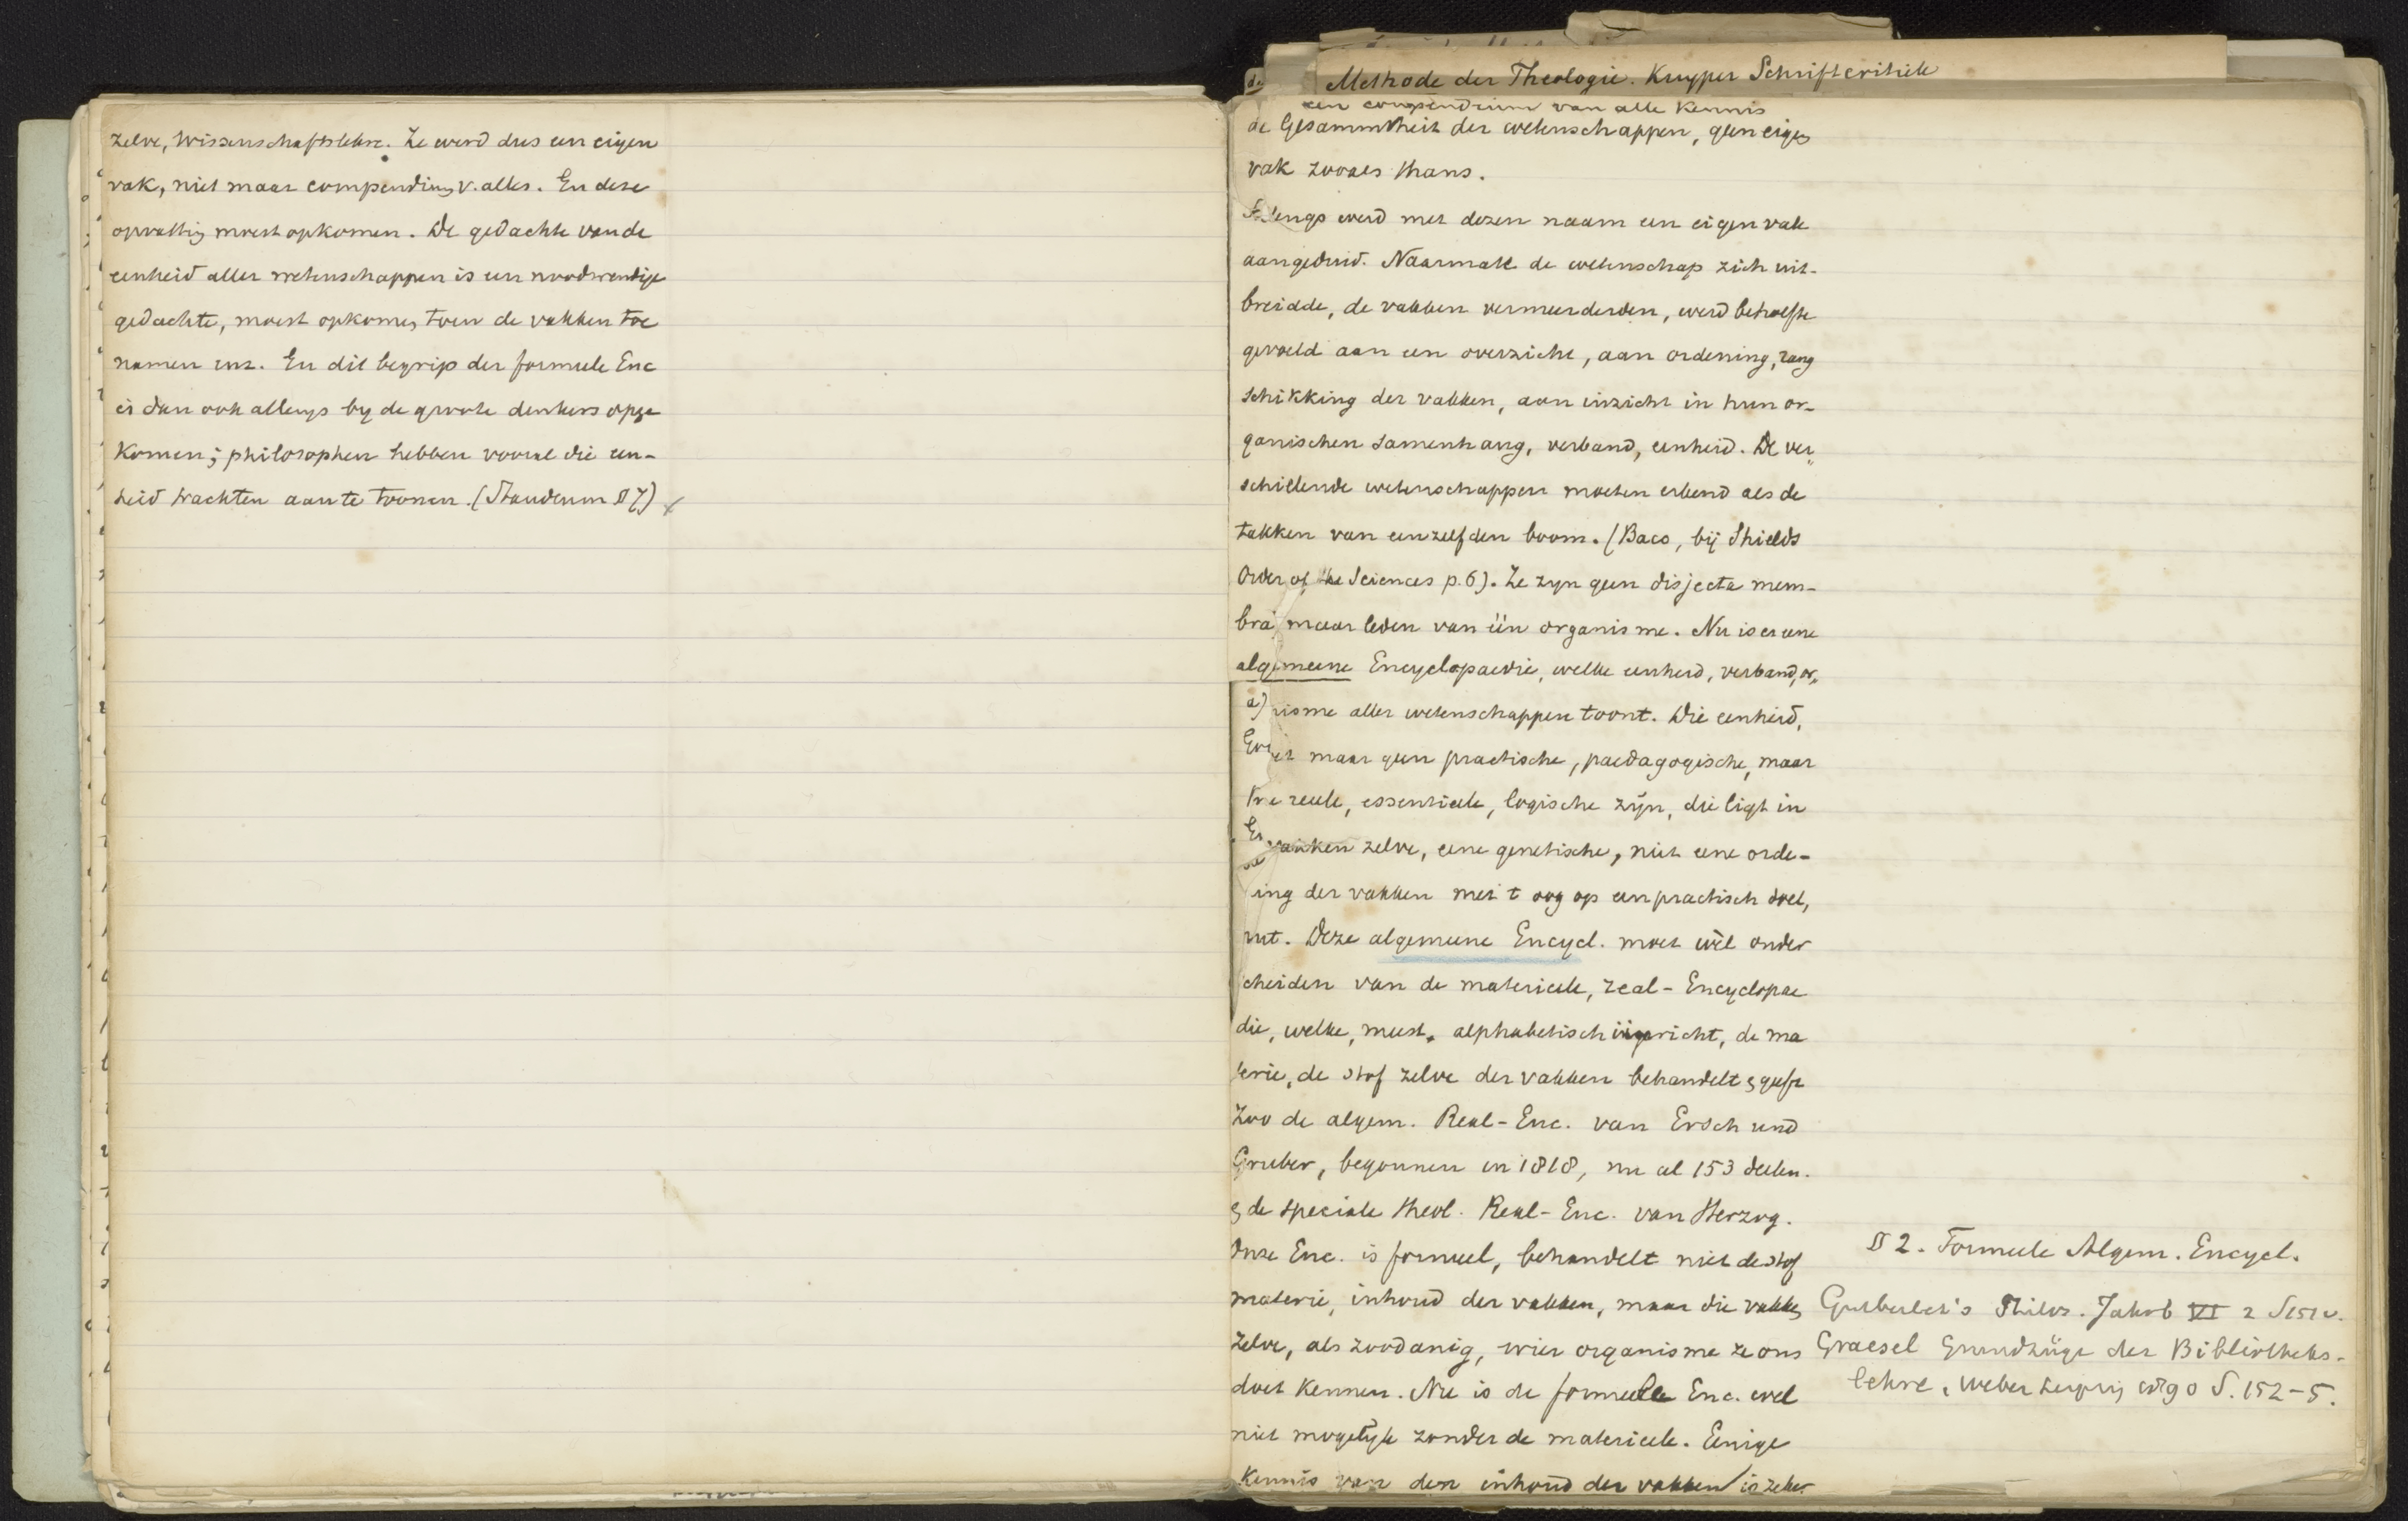 zelve, Wissenschaftslehre. Ze werd dus een eigen
vak, niet maar compendium v. alles. En deze
opvatting moest opkomen. De gedachte van de
eenheid aller wetenschappen is een noodwendige
gedachte, moest opkomen, toen de vakken toe
namen enz. En dit begrip der formeele Enc
is dan ook allengs by de groote denkers opge
komen; philosophen hebben vooral die een-
heid trachten aan te toonen. (Staudenm § 7)
Methode der Theologie. Kuyper Schriftcritiek
een compendium van alle kennis
de Gesammtheit der wetenschappen, geen eigen
vak zooals thans.
Allengs werd met dezen naam een eigen vak
aangeduid. Naarmate de wetenschap zich uit-
breidde, de vakken vermeerderden, werd behoefte
gevoeld aan een overzicht, aan ordening, rang
schikking der vakken, aan inzicht in hun or-
ganischen samenhang, verband, eenheid. De ver„
schillende wetenschappen moeten erkend als de
takken van eenzelfden boom. (Baco, bij Shields
Order of the Sciences p. 6). Ze zyn geen disjecta mem-
bra maar leden van één organisme. Nu is er eene
algemeene Encyclopaedie, welke eenheid, verband, or„
a) nisme aller wetenschappen toont. Die eenheid,
maar geen practische, paedagogische, maar
reeele, essentieele, logische zijn, die ligt in
vakken zelve, eene genetische, niet eene orde-
ing der vakken met t oog op een practisch doel,
nut. Deze algemeene Encycl. moet wèl onder
scheiden van de materieele, real-Encyclopae
die, welke, meest, alphabetisch ingericht, de ma
terie, de stof zelve der vakken behandelt & geeft
Zoo de algem. Real-Enc. van Ersch und
Gruber, begonnen in 1818, nu al 153 deelen.
& de speciale theol. Real-Enc. van Herzog.
Onze Enc. is formeel, behandelt niet de stof
materie, inhoud der vakken, maar die vakken
zelve, als zoodanig, wier organisme ze ons
doet kennen. Nu is de formeele Enc. wel
niet mogelyk zonder de materieele. Eenige
Kennis van den inhoud der vakken is zeker
§ 2. Formeele Algem. Encycl.
Gutberlet's Philos. Jahrb VI 2 S 151 v.
Graesel Grundzüge der Bibliotheks-
lehre, Weber Leipzig 1890 S. 152-5.